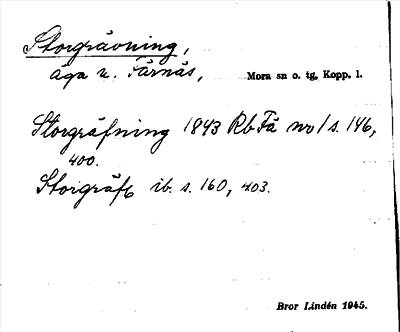 Storgrävning,
äga n. Färnäs, Mora sn o. tg, Kopp. l.
Storgräfning 1843 Rb Fä nr 1 s. 146,
400.
Storgräfs ib. s. 160, 403.
Bror Lindén 1945.